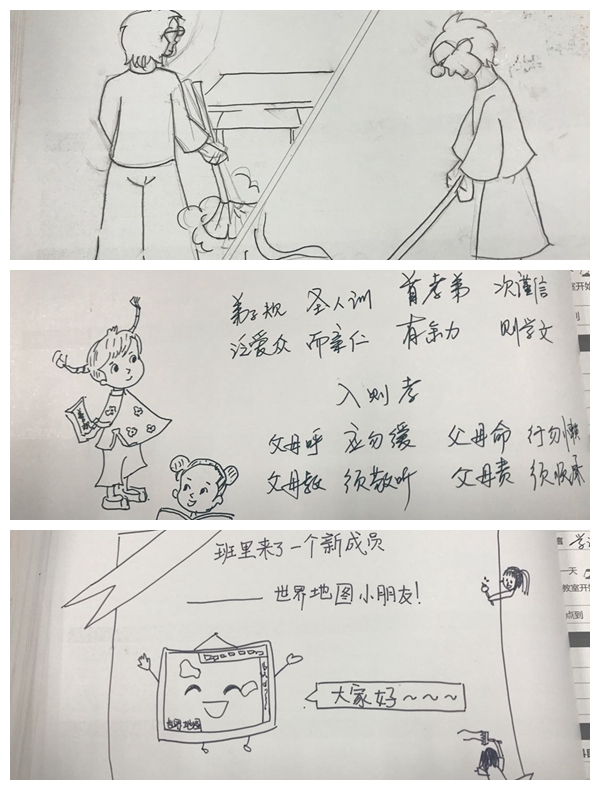 弟子规 圣人训 首孝弟 次谨信
泛爱众 而亲仁 有余力 则学文
入则孝
父母呼 应勿缓 父母命 行勿懒
父母教 须敬听 父母责 须顺承
班里来了一个新成员
世界地图小朋友!
世界地图
大家好~~~
一天
点到